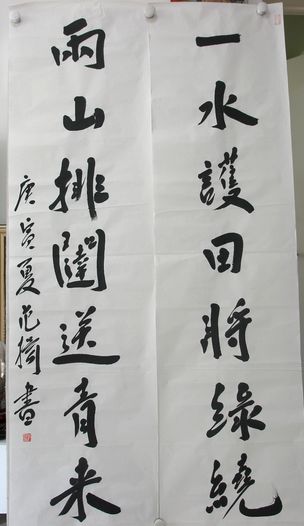 一水護田將綠繞
兩山排闥送青来
庚寅夏范書